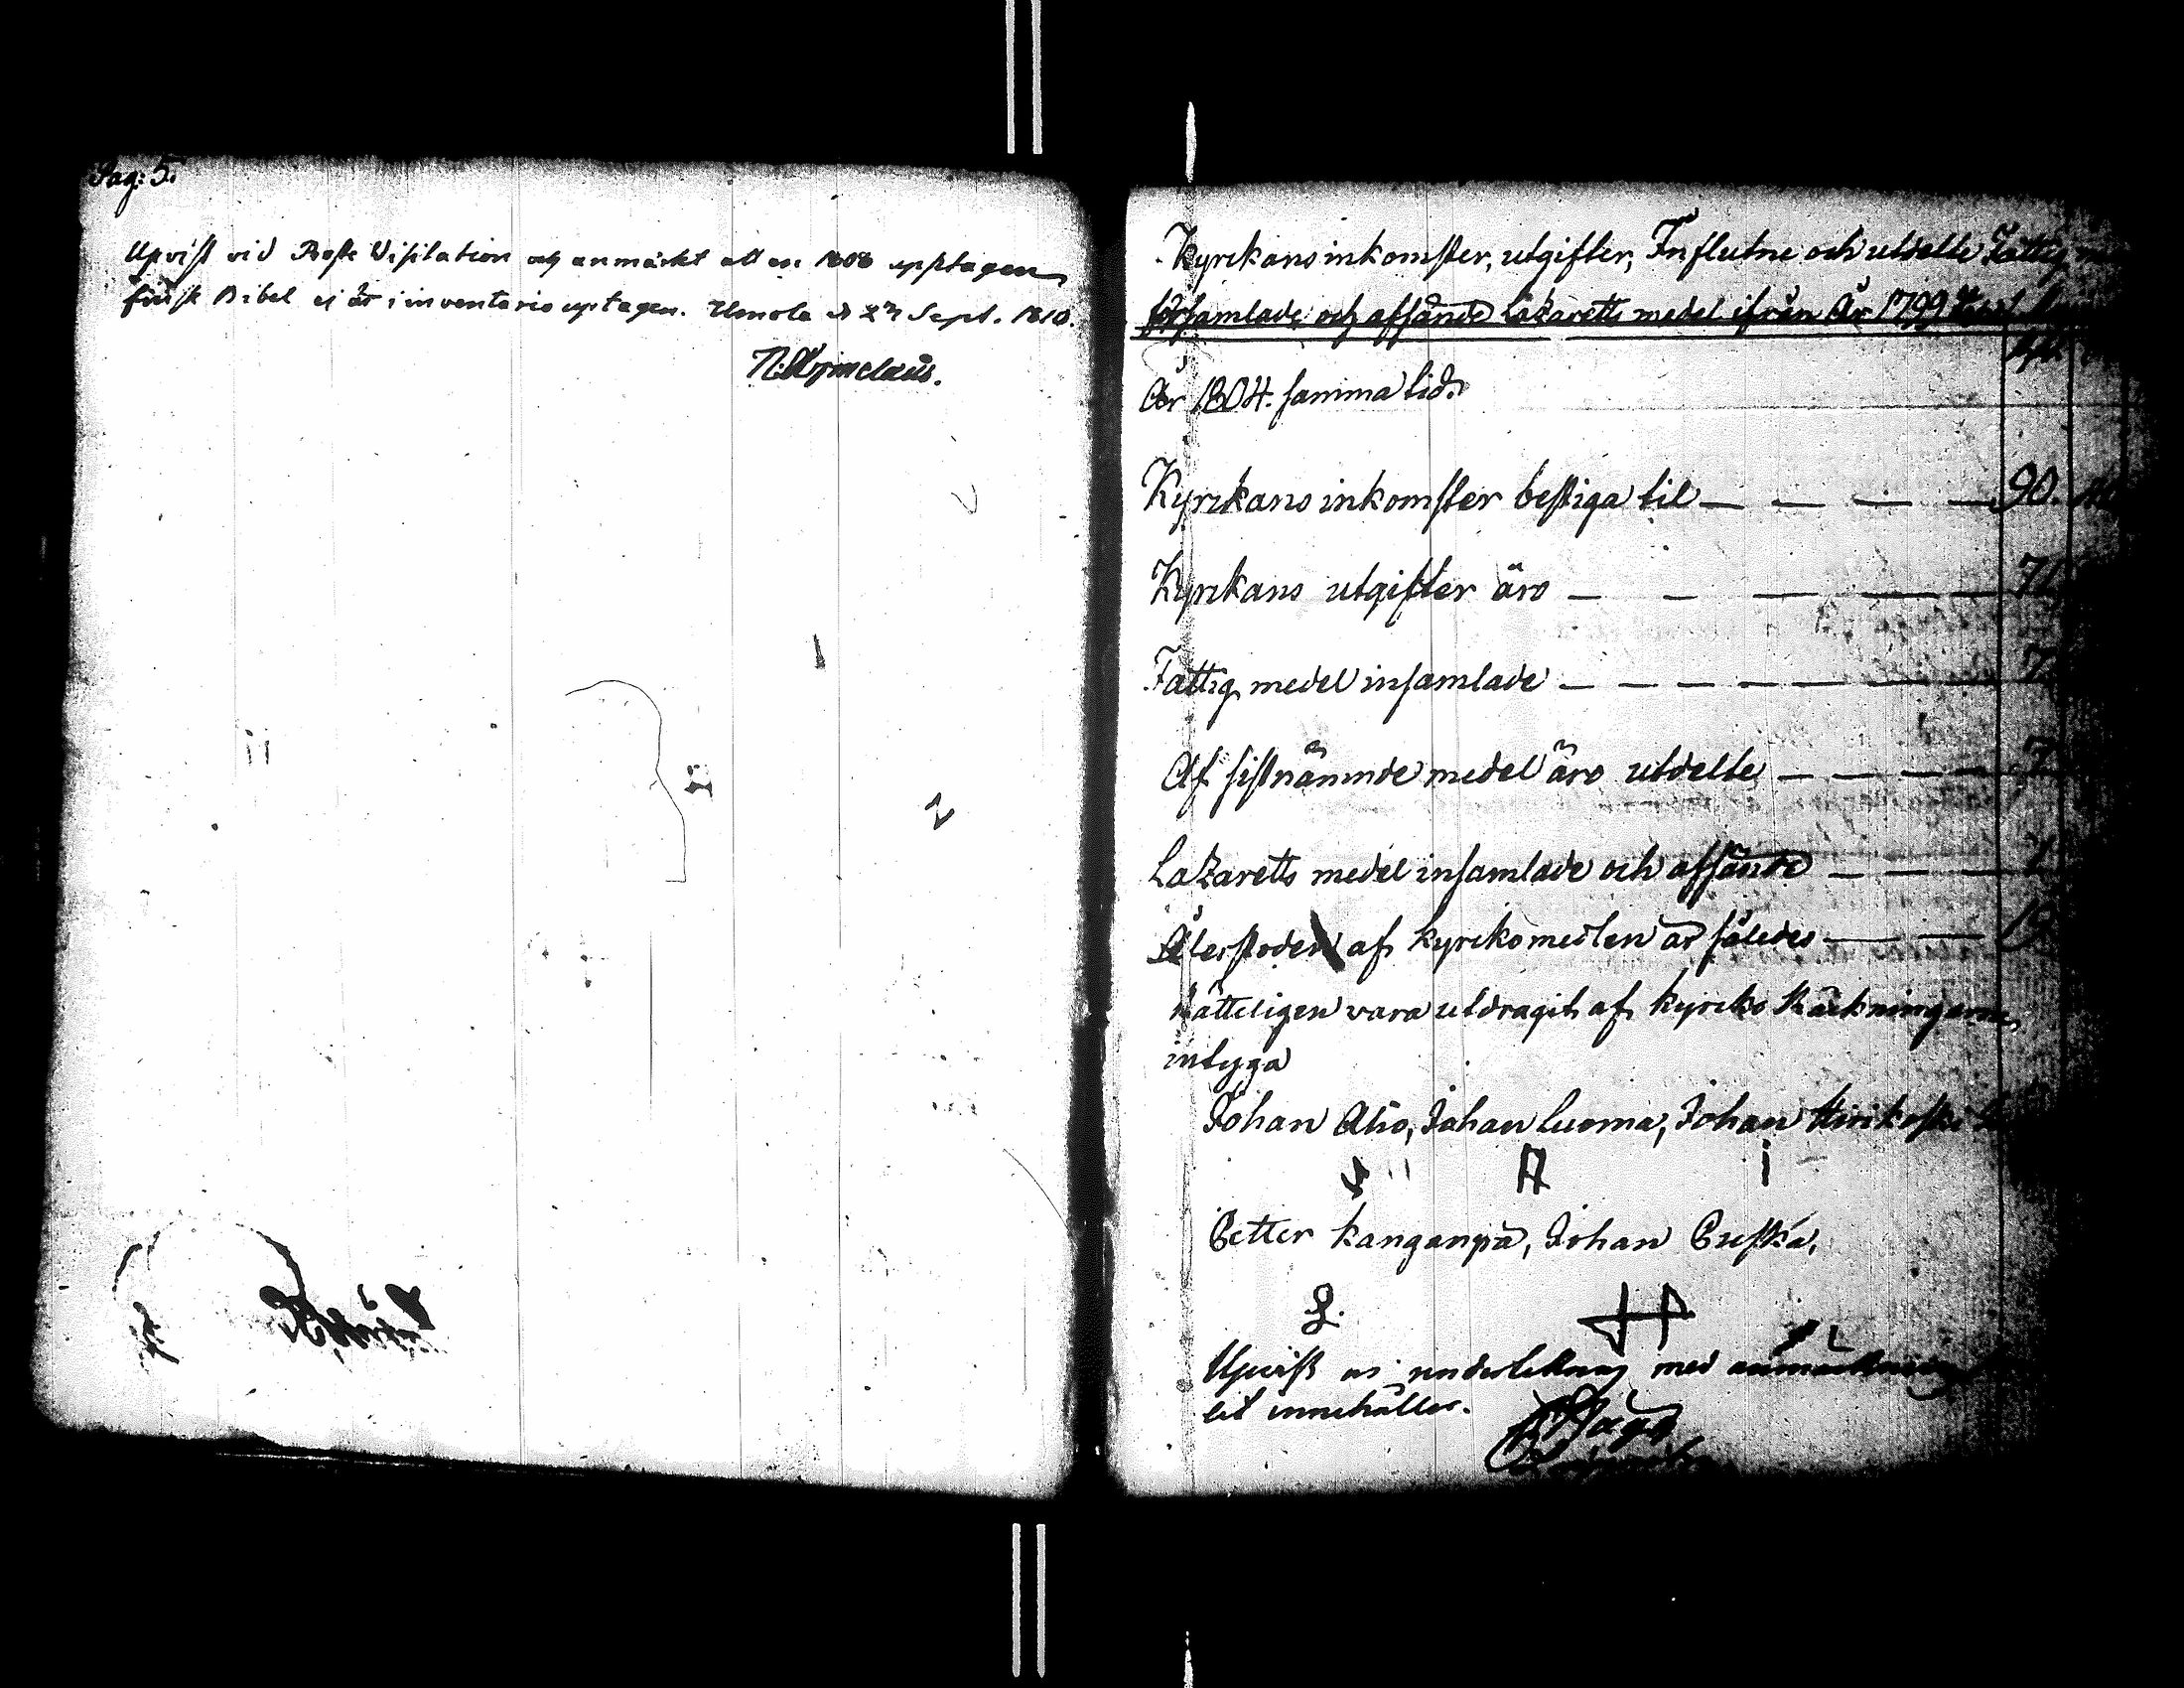 Pag: 5.
Upvist vid Visitation och anmärkt att en 1808 upptagen
finsk Bibel ej är i inventario uptagen. d 27 Sept. 1810.
Kyrckans inkomster, utgifter, Influtne och utdelte Fattig
församlade och afsände Lazaretts medel ifrån År 1799
År 1804. samma tid.
Kyrckans inkomster bestiga til — — — — 90.
Kyrckans utgifter äro — — — — — 71
Fattig medel insamlade — — — — — — 7
Af sistnämnde medel äro utdelte — — — — 7
Lazaretts medel insamlade och afsände — — —
Återstoden af kyrckomedlen är således — —
Rätteligen vara utdragit af kyrcko Räckningarne,
intyga
Johan Aho, Johan Luoma, Johan
Petter Kanganpä, Johan Puska,
Upvist med anmärkning
innehåller.